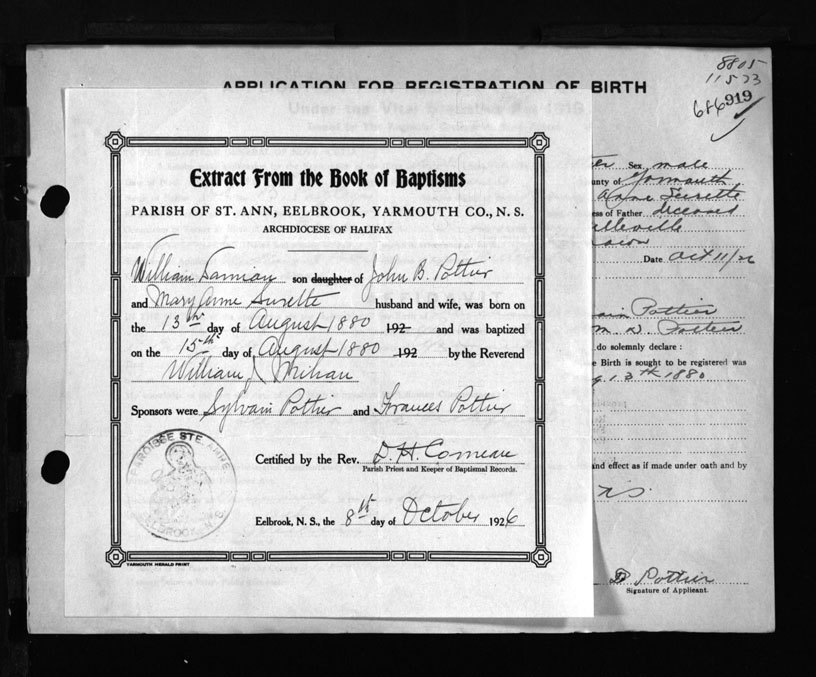 8805
11573
686919
APPLICATION FOR REGISTRATION OF BIRTH
Under the Vital Statistics Act 1919
Extract From the Book of Baptisms
PARISH OF ST. ANN, EELBROOK, YARMOUTH CO., N. S.
ARCHDIOCESE OF HALIFAX
William Damian son daughter of John B. Pottier
and Mary Anne Surette husband and wife, was born on
the 13th day of August 1880 192 and was baptized
on the 15th day of August 1880 192 by the Reverend
William J
Sponsors were Sylvain Pottier and Frances Pottier
Certified by the Rev. D. H. Comeau
Parish Priest and Keeper of Baptismal Records.
Eelbrook, N. S., the 8th day of October 1926
YARMOUTH HERALD PRINT
PAROISSE STE. ANNE
EELBROOK, N.S.
er Sex male
unty of Yarmouth
Anne Surette
ess of Father deceased
elleville
Date Oct 11/26
ain Pottier
m D. Pottier
do solemnly declare :
e Birth is sought to be registered was
g. 13th 1880
and effect as if made under oath and by
N.S.
D Pottier
Signature of Applicant.